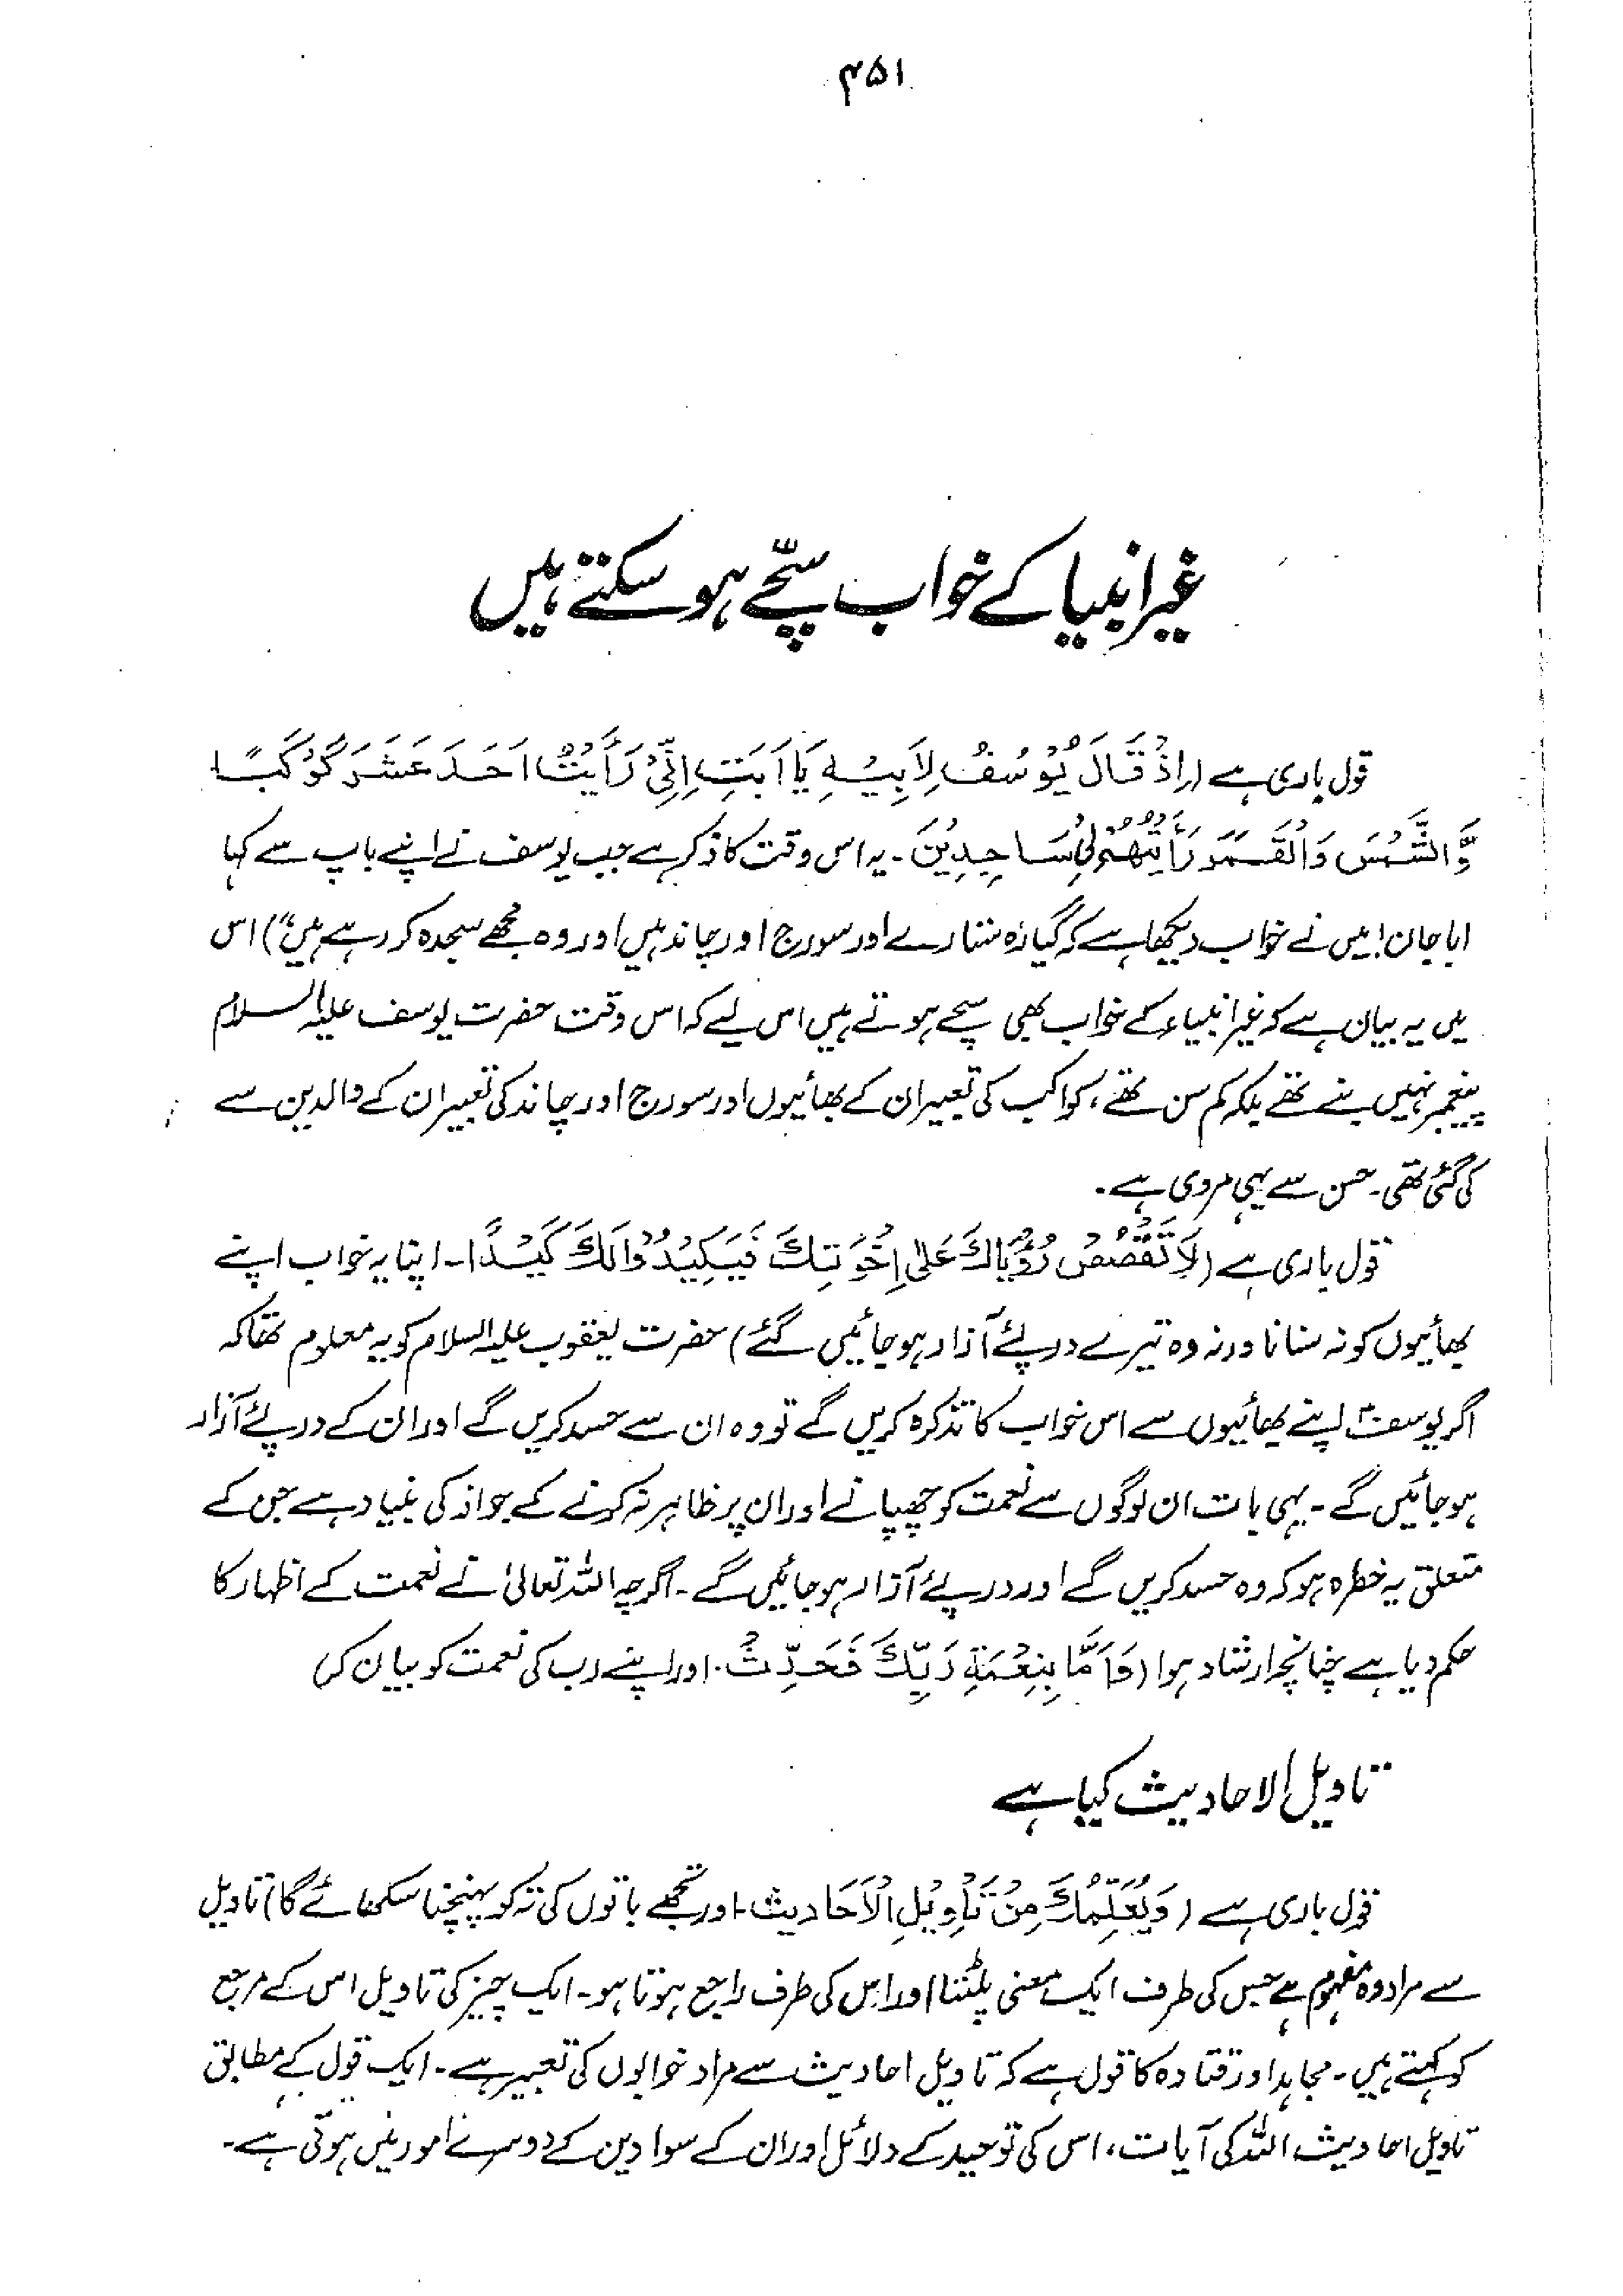 ۴۵۱
غیر انبیا کے خواب سچے ہو سکتے ہیں
قول باری ہے (اِذْ قَالَ یُوْسُفُ لِاَبِیْہِ یَا اَبَتِ اِنِّیْ رَأَیْتُ اَحَدَ عَشَرَ کَوْکَبًا
وَّالشَّمْسَ وَالْقَمَرَ رَأَیْتُھُمْ لِیْ سَاجِدِیْنَ۔ یہ اس وقت کا ذکر ہے جب یوسف نے اپنے باپ سے کہا
ابا جان! میں نے خواب دیکھا ہے کہ گیارہ ستارے اور سورج اور چاند ہیں اور وہ مجھے سجدہ کر رہے ہیں") اس
میں یہ بیان ہے کہ غیر انبیاء کے خواب بھی سچے ہوتے ہیں اس لیے کہ اس وقت حضرت یوسف علیہ السلام
پیغمبر نہیں بنے تھے بلکہ کم سن تھے، کواکب کی تعبیر ان کے بھائیوں اور سورج اور چاند کی تعبیر ان کے والدین سے
کی گئی تھی۔ حسن سے یہی مروی ہے۔
قول باری ہے (لَا تَقْصُصْ رُؤْیَاکَ عَلٰی اِخْوَتِکَ فَیَکِیْدُوْا لَکَ کَیْدًا۔ اپنا یہ خواب اپنے
بھائیوں کو نہ سنانا ورنہ وہ تیرے درپئے آزار ہو جائیں گئے) حضرت یعقوب علیہ السلام کو یہ معلوم تھا کہ
اگر یوسفؑ اپنے بھائیوں سے اس خواب کا تذکرہ کریں گے تو وہ ان سے حسد کریں گے اور ان کے درپئے آزار
ہو جائیں گے۔ یہی بات ان لوگوں سے نعمت کو چھپانے اور ان پر ظاہر نہ کرنے کے جواز کی بنیاد ہے جن کے
متعلق یہ خطرہ ہو کہ وہ حسد کریں گے اور درپئے آزار ہو جائیں گے۔ اگرچہ اللہ تعالیٰ نے نعمت کے اظہار کا
حکم دیا ہے چنانچہ ارشاد ہوا (وَاَمَّا بِنِعْمَۃِ رَبِّکَ فَحَدِّثْ۔ اور اپنے رب کی نعمت کو بیان کر)
تاویل الاحادیث کیا ہے
قول باری ہے (وَیُعَلِّمُکَ مِنْ تَاْوِیْلِ الْاَحَادیث۔ اور تجھے باتوں کی تہ کو پہنچنا سکھائے گا) تاویل
سے مراد وہ مفہوم ہے جس کی طرف ایک معنی پلٹتا اور اس کی طرف راجع ہوتا ہو۔ ایک چیز کی تاویل اس کے مرجع
کو کہتے ہیں۔ مجاہد اور قتادہ کا قول ہے کہ تاویل احادیث سے مراد خوابوں کی تعبیر ہے۔ ایک قول کے مطابق
تاویل احادیث اللہ کی آیات، اس کی توحید کے دلائل اور ان کے سوا دین کے دوسرے امور میں ہوتی ہے۔